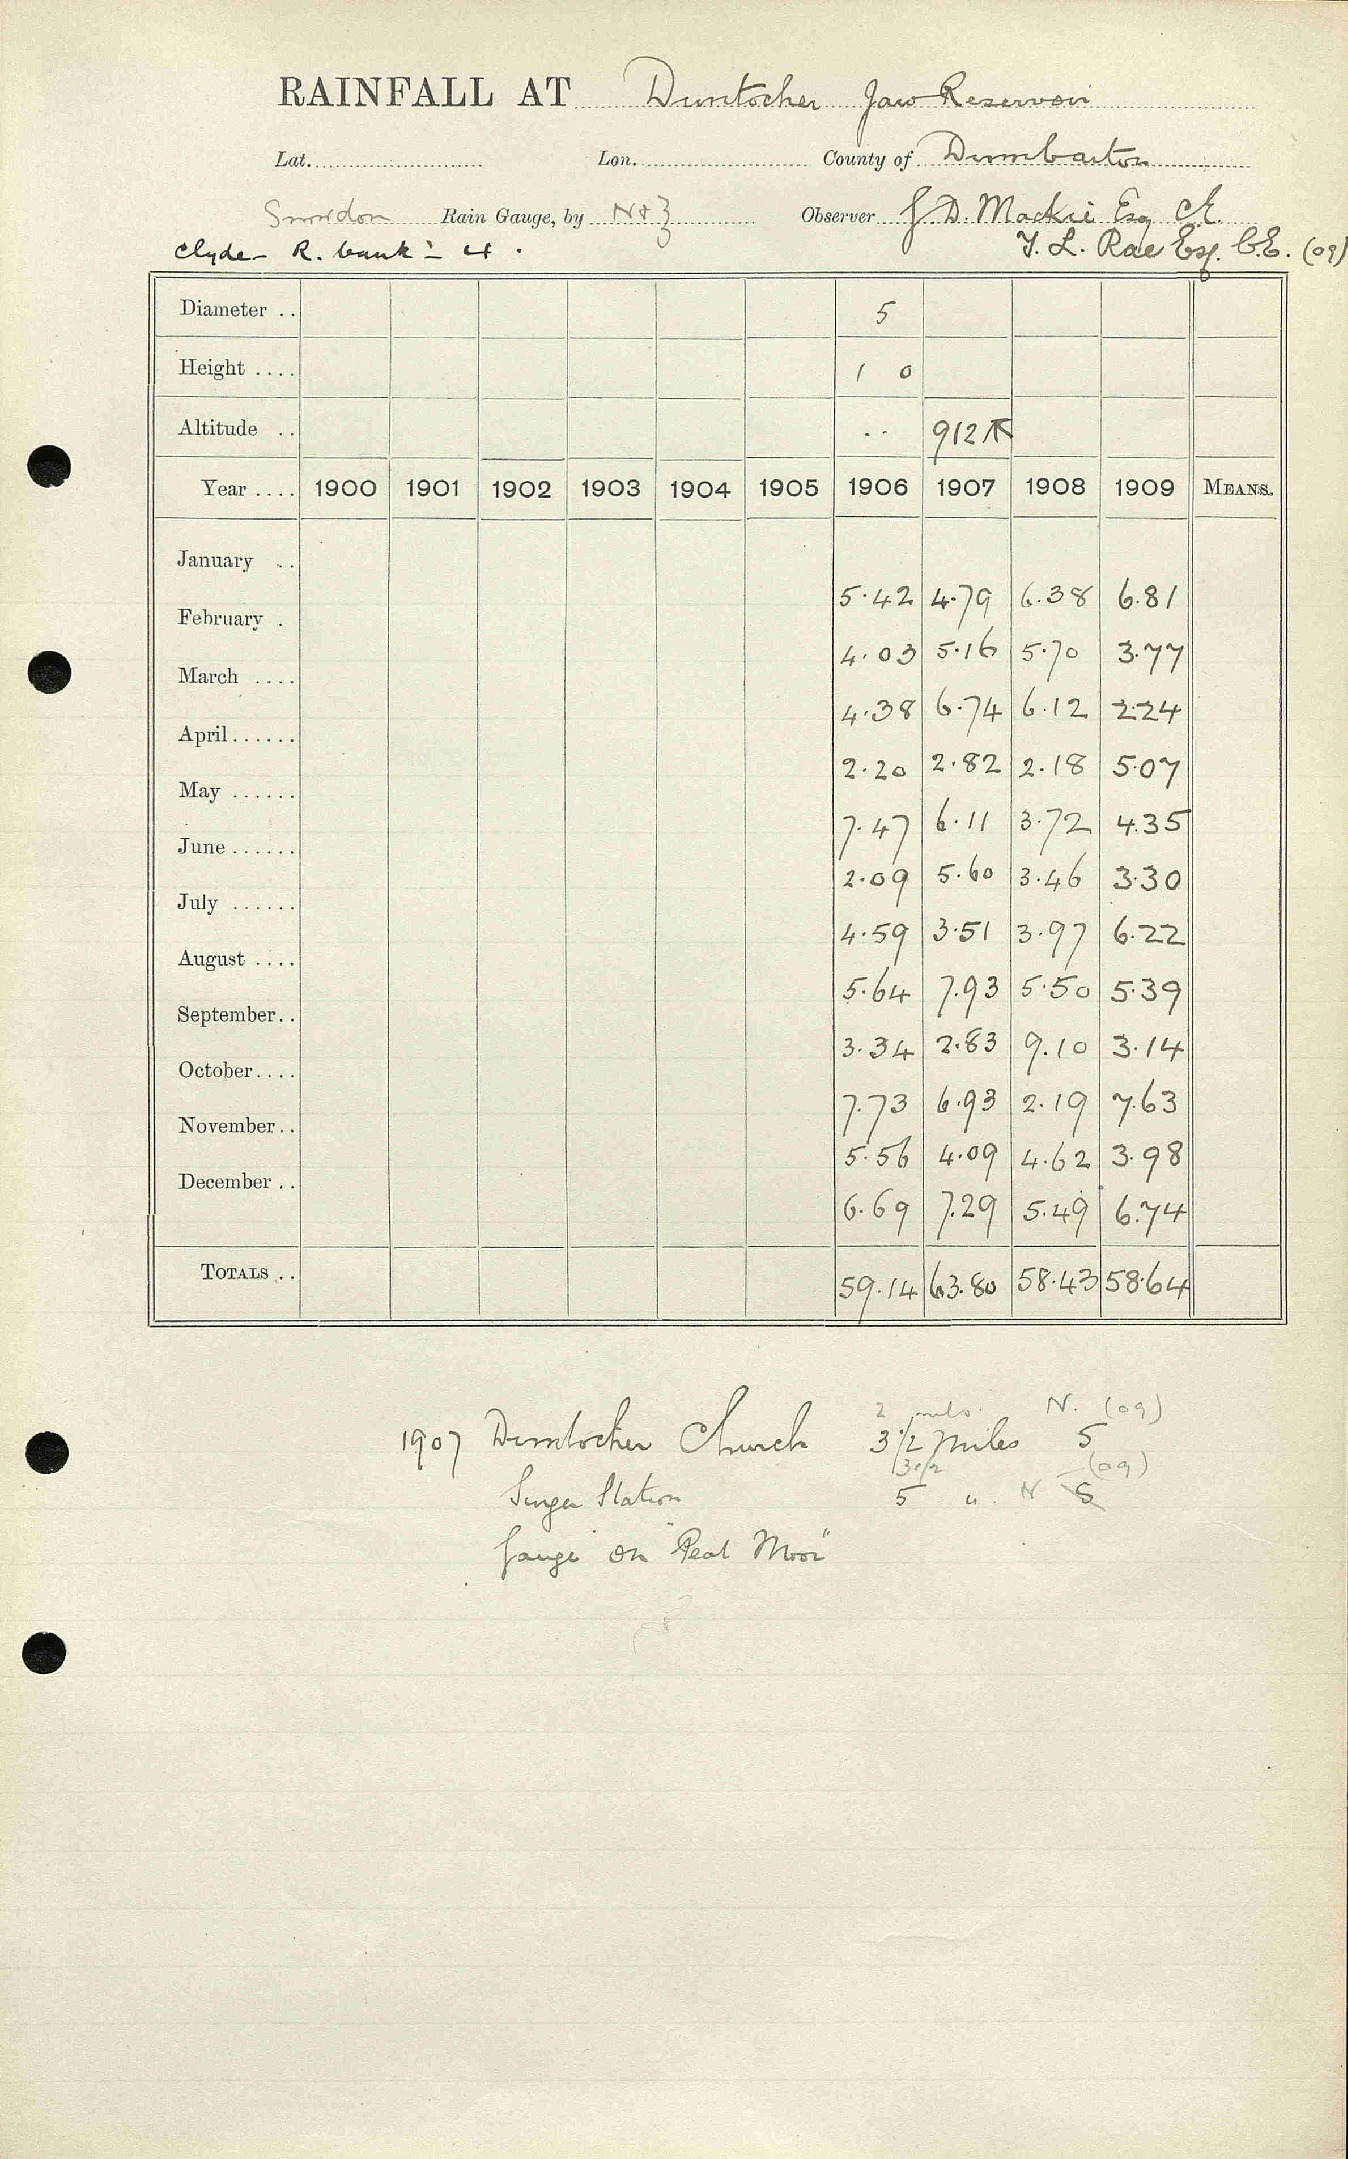 RAINFALL AT Duntocher Jaw Reservoir
Lat. Lon. County of Dumbarton
Snowdon Rain Gauge, by N & Z Observer J D. Mackie Esq C.E.
Clyde R. bank 4. T. L. Rae Esq. C.E. (09)
Diameter .. 5
Height .... 1 0
Altitude .. .. 912
Year .... 1900 1901 1902 1903 1904 1905 1906 1907 1908 1909 MEANS.
January .. 5.42 4.79 6.38 6.81
February . 4.03 5.16 5.70 3.77
March .... 4.38 6.74 6.12 2.24
April...... 2.20 2.82 2.18 5.07
May ...... 7.47 6.11 3.72 4.35
June...... 2.09 5.60 3.46 3.30
July ...... 4.59 3.51 3.97 6.22
August .... 5.64 7.93 5.50 5.39
September.. 3.34 2.83 9.10 3.14
October.... 7.73 6.93 2.19 7.63
November.. 5.56 4.09 4.62 3.98
December .. 6.69 7.29 5.49 6.74
TOTALS .. 59.14 63.80 58.43 58.64
2 miles. N. (09)
1907 Duntocher Church 3 1/2 miles S
3 1/2 (09)
Singer Station 5 " N S
Gauge on "Peat Moor"